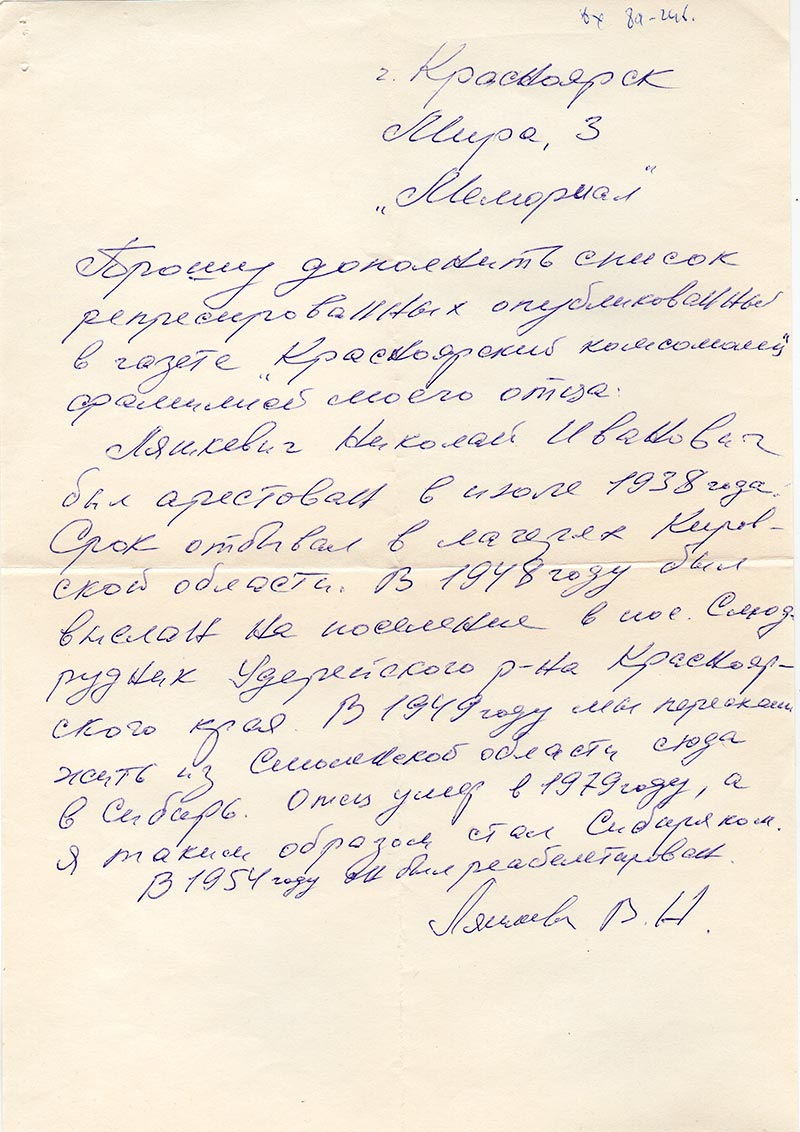 г. Красноярск
Мира, 3
„Мемориал“
Прошу дополнить список
репресированных опубликованный
в газете „Красноярский комсомолец“
фамилией моего отца:
Ляшкевич Николай Иванович
был арестован в июле 1938 года.
Срок отбывал в лагерях Киров-
ской области. В 1948 году был
выслан на поселение в пос. Слюд-
рудник Удерейского р-на Краснояр-
ского края. В 1949 году мы переехали
жить из Смоленской области сюда
в Сибирь. Отец умер в 1979 году, а
я таким образом стал Сибиряком.
В 1954 году он был реабелетирован.
В. Н.